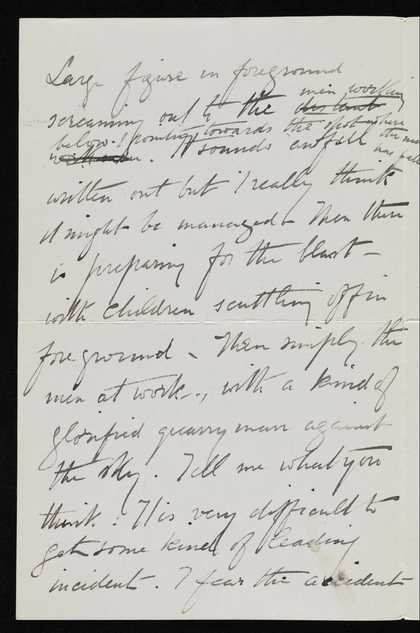 Large figure in foreground
screaming out to the distant men working
below! pointing towards the spot where the man has fallen
. It sounds awful
written out but I really think
it might be managed. Then there
is preparing for the blast –
with children scuttling off in
foreground – Then simply the
men at work., with a kind of
glorified quarry man against
the sky. Tell me what you
think. It is very difficult to
get some kind of leading
incident. I fear the accident